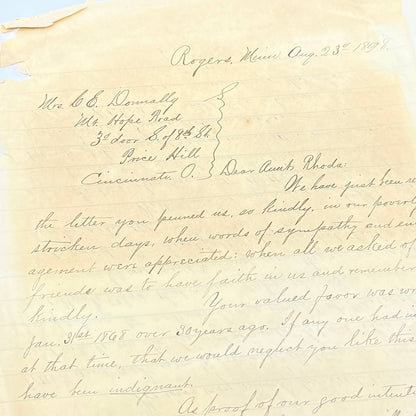 Rogers, Minn Aug. 23rd 1898.
Mrs. C E. Donnally
Mt. Hope Road
3d door S. of 8th St.
Price Hill
Cincinnati, O.
Dear Aunt Rhoda:
We have just been re
the letter you penned us, so kindly, in our povert
stricken days, when words of sympathy and en
agement were appreciated; when all we asked of
friends was to have faith in us and remember
kindly.
Your valued favor was wr
Jan. 31st 1868 over 30 years ago. If any one had
at that time, that we would neglect you like this
have been indignant.
As proof of our good intent